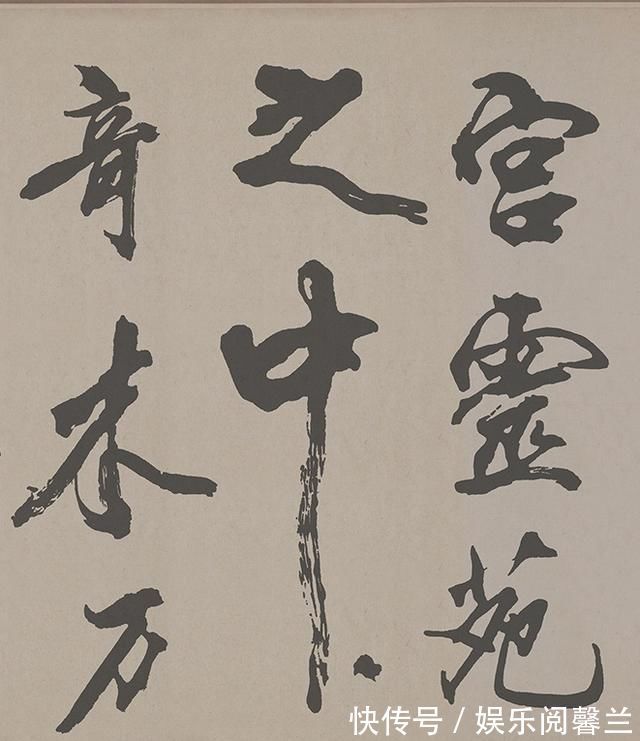 宫靈苑
之中
奇木万
快传号/娱乐阅馨兰